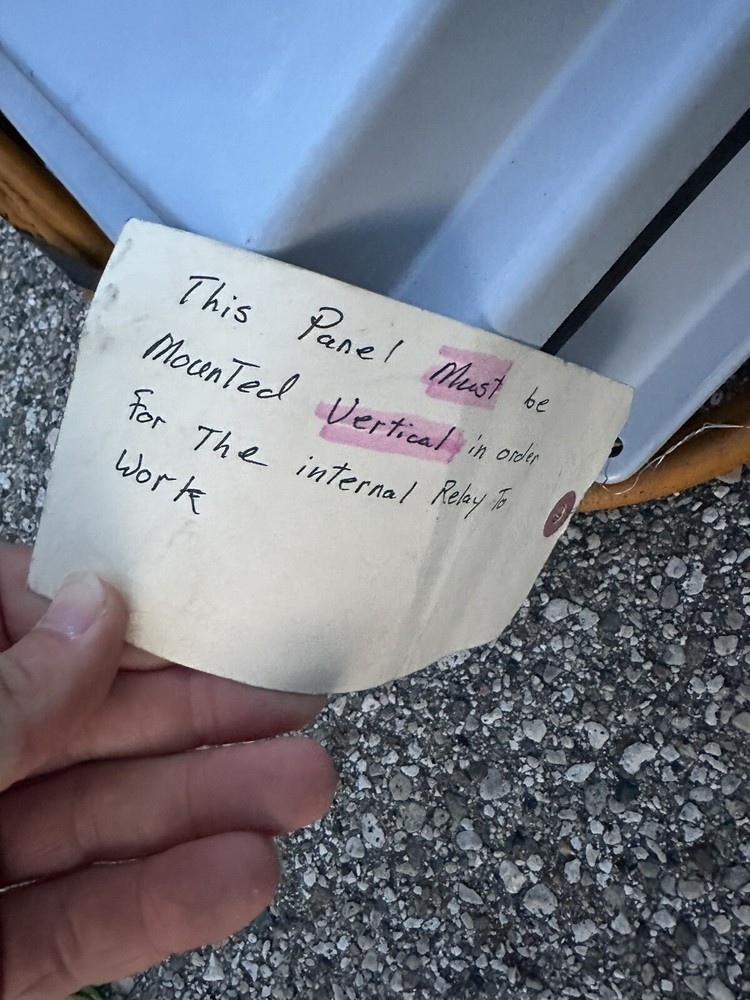 This Panel Must be
Mounted Vertical in order
For The internal Relay To
Work